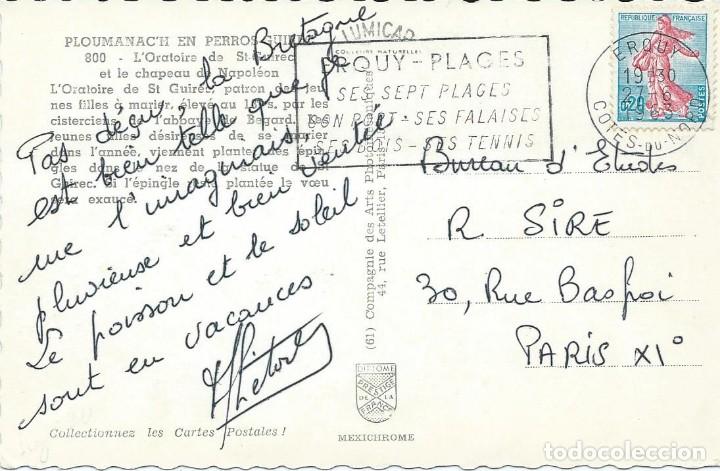 PLOUMANAC'H EN PERROS-GUIREC
800 - L'Oratoire de St-Guirec
et le chapeau de Napoléon
L'Oratoire de St Guirec, patron des jeu
nes filles à marier, élevé au par les
cisterciens de l'abbaye de Begard. Les
jeunes filles désireuses de se marier
dans l'année, viennent planter des épin
gles dans le nez de la statue de St
Guirec. Si l'épingle reste plantée le vœu
sera exaucé.
Pas déçu, la Bretagne
est bien telle que je
me l'imaginais,
pluvieuse et bien ventée
Le poisson et le soleil
sont en vacances
Collectionnez les Cartes Postales !
LUMICAP
COULEURS NATURELLES
(61) Compagnie des Arts Photomécaniques
44, rue Letellier, Paris
DIPLOME
PRESTIGE
DE LA
FRANCE
MEXICHROME
ERQUY - PLAGES
SES SEPT PLAGES
SON PORT - SES FALAISES
SES BOIS - SES TENNIS
ERQUY
19-30
27-6
COTES-DU-NORD
REPUBLIQUE FRANÇAISE
0,20
POSTES
Bureau d'Etudes
R SIRE
30, Rue Basfroi
PARIS XI°
todocoleccion